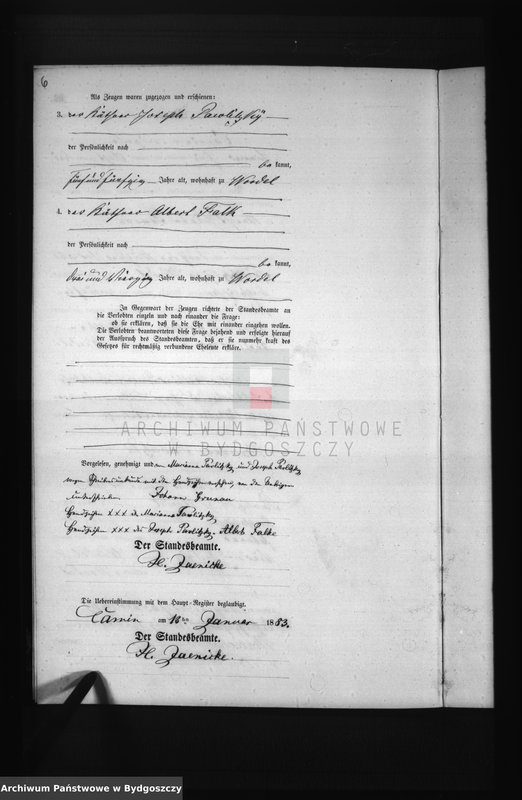 6
Als Zeugen waren zugezogen und erschienen:
3. der Käthner Joseph Pawlitzky
der Persönlichkeit nach
be kannt,
fünf und fünfzig Jahre alt, wohnhaft zu Wordel
4. der Käthner Albert Falk
der Persönlichkeit nach
be kannt,
drei und vierzig Jahre alt, wohnhaft zu Wordel
In Gegenwart der Zeugen richtete der Standesbeamte an
die Verlobten einzeln und nach einander die Frage:
ob sie erklären, daß sie die Ehe mit einander eingehen wollen.
Die Verlobten beantworteten diese Frage bejahend und erfolgte hierauf
der Ausspruch des Standesbeamten, daß er sie nunmehr kraft des
Gesetzes für rechtmäßig verbundene Eheleute erkläre.
ARCHIWUM PAŃSTWOWE
W BYDGOSZCZY
Vorgelesen, genehmigt und von Marianna Pawlitzky und Joseph Pawlitzky
wegen Schreibensunkunde mit dem Handzeichen versehen, von den Uebrigen
unterschrieben Johann
Handzeichen xxx der Marianna Pawlitzky
Handzeichen xxx des Joseph Pawlitzky. Albert Falk
Der Standesbeamte.
H. Jaenicke
Die Uebereinstimmung mit dem Haupt-Register beglaubigt.
Camin am 16ten Januar 1883.
Der Standesbeamte.
H. Jaenicke.
Archiwum Państwowe w Bydgoszczy